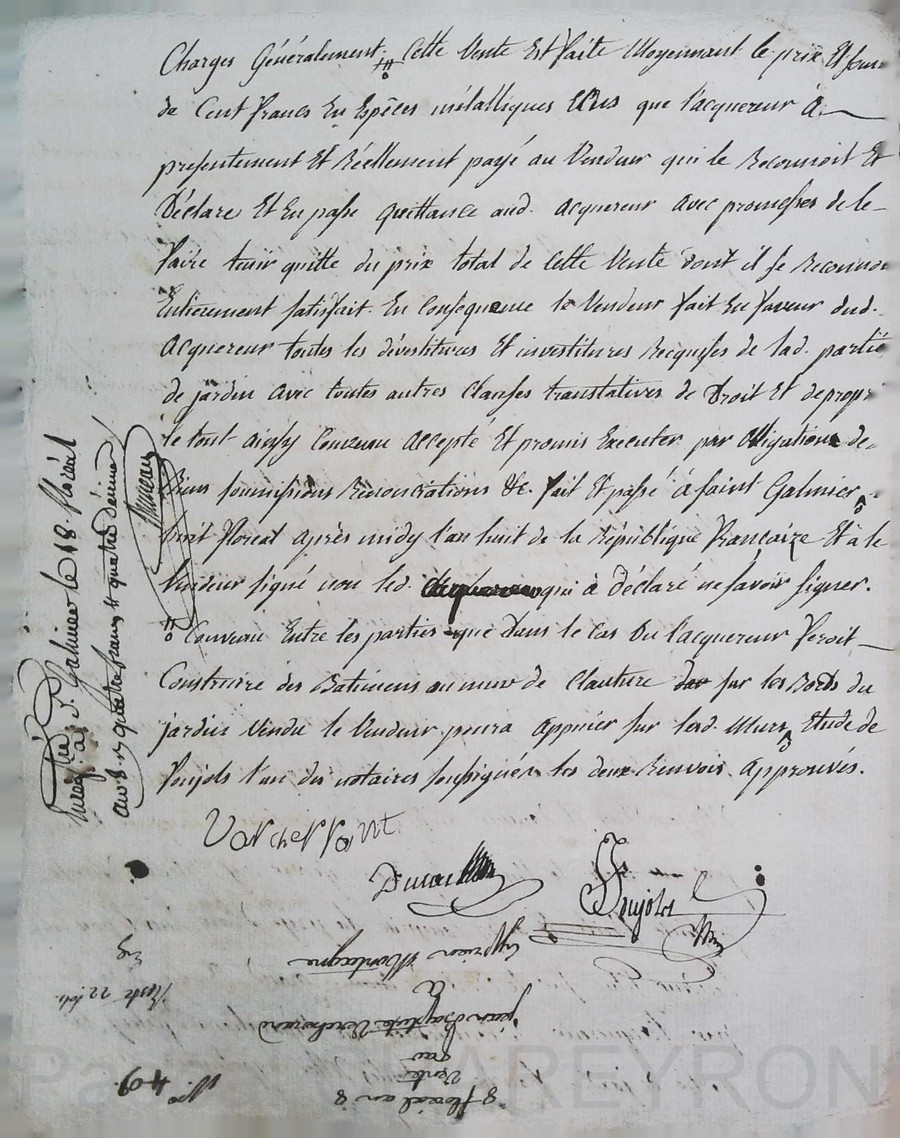 Charges Généralement. Cette Vente Est faite Moyennant le prix Et somme
de Cent francs En Espèces métalliques que l'acquereur à
presentement Et Réellement payé au Vendeur qui le Reconnoit Et
Déclare Et En passe quittance aud. acquereur avec promesses de le
faire tenir quitte du prix total de Cette Vente dont il se Reconnoit
Entierement satisfait. En Consequence le Vendeur fait En faveur dud.
acquereur toutes les dévestitures Et investitures Requises de lad. partie
de jardin avec toutes autres Clauses translatives de Droit Et de propri
le tout ainsy Convenu accepté Et promis Executer par obligations de
Biens soumissions Renonciations &c. fait Et passé à saint Galmier
huit floreal après midy l'an huit de la République française Et à le
Vendeur signé non led. acquereur qui a déclaré ne savoir signer.
Convenu Entre les parties que dans le cas ou l'acquereur feroit
Construire des Batimens ou murs de Clauture sur les Bords du
jardin Vendu le Vendeur poura appuier sur lesd. Murs, Etude de
Poujols l'un des notaires soussignés les deux Renvois Approuvés.
Enregistré à St. Galmier le 18 floréal
an 8. quatre francs quatre décimes
Verchersaint
Poujols
Cyprien Montagne
à
jean Baptiste
par
Vente
8 floréal an 8
Reste 22
Nº 409.